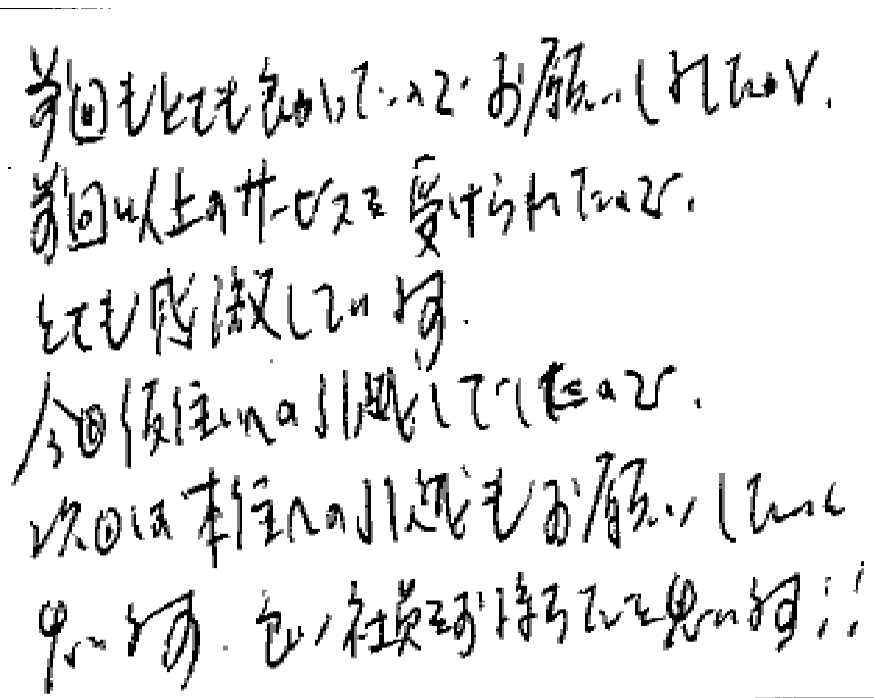 前回もとても良かったのでお願いしましたが、
前回以上のサービスを受けられたので、
とても感激しています.
今回仮住いへの引越しでしたので、
次回は本住への引越もお願いしたいと
思います. 良い社員をお持ちだと思います!!